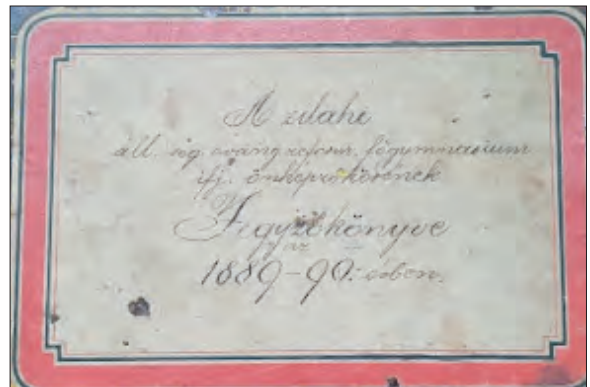 A zilahi
áll. seg. evang. reform. főgymnasium
ifj. önképzőkörének
Jegyzőkönyve
az
1889-90. évben.